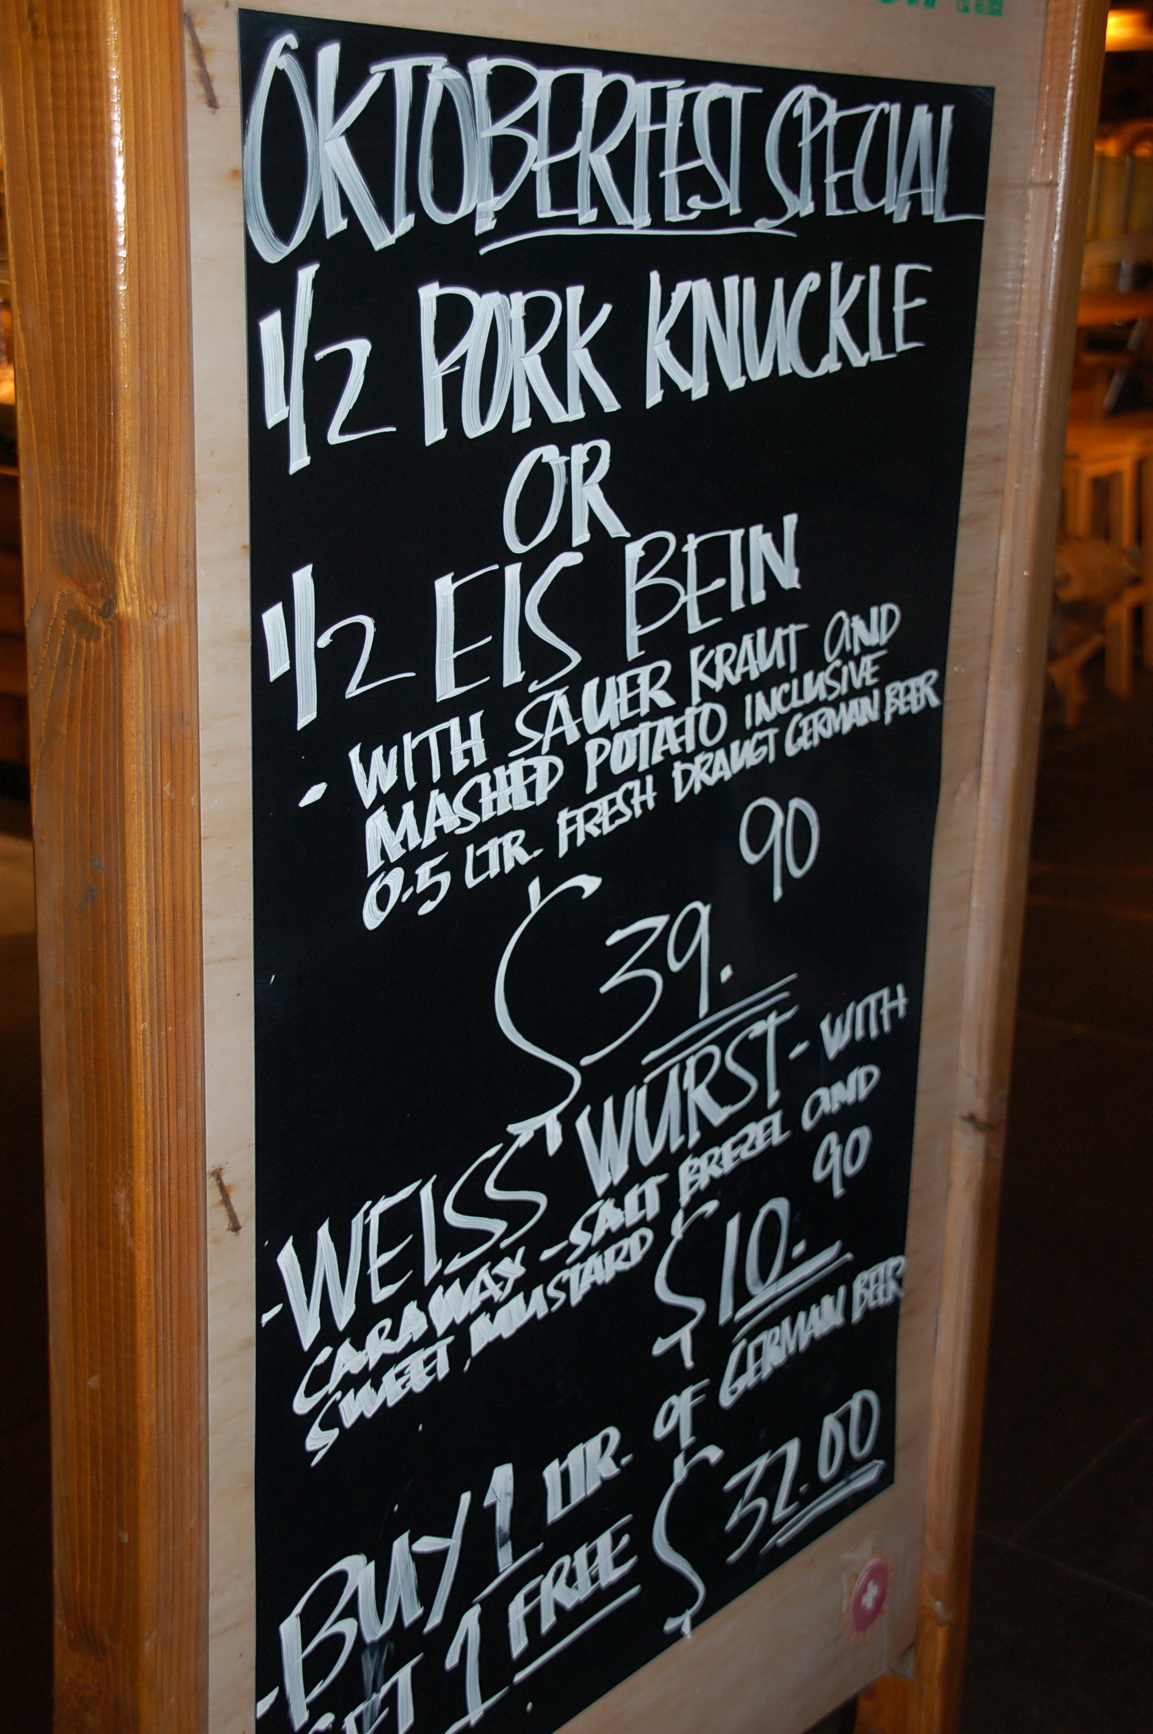 OKTOBERFEST SPECIAL
1/2 PORK KNUCKLE
OR
1/2 EIS BEIN
- WITH SAUER KRAUT AND
MASHED POTATO INCLUSIVE
0.5 LTR. FRESH DRAUGT GERMAN BEER
$39.90
- WEISS WURST - WITH
CARAWAY - SALT BREZEL AND
SWEET MUSTARD $10.90
- BUY 1 LTR. OF GERMAN BEER
GET 1 FREE $32.00